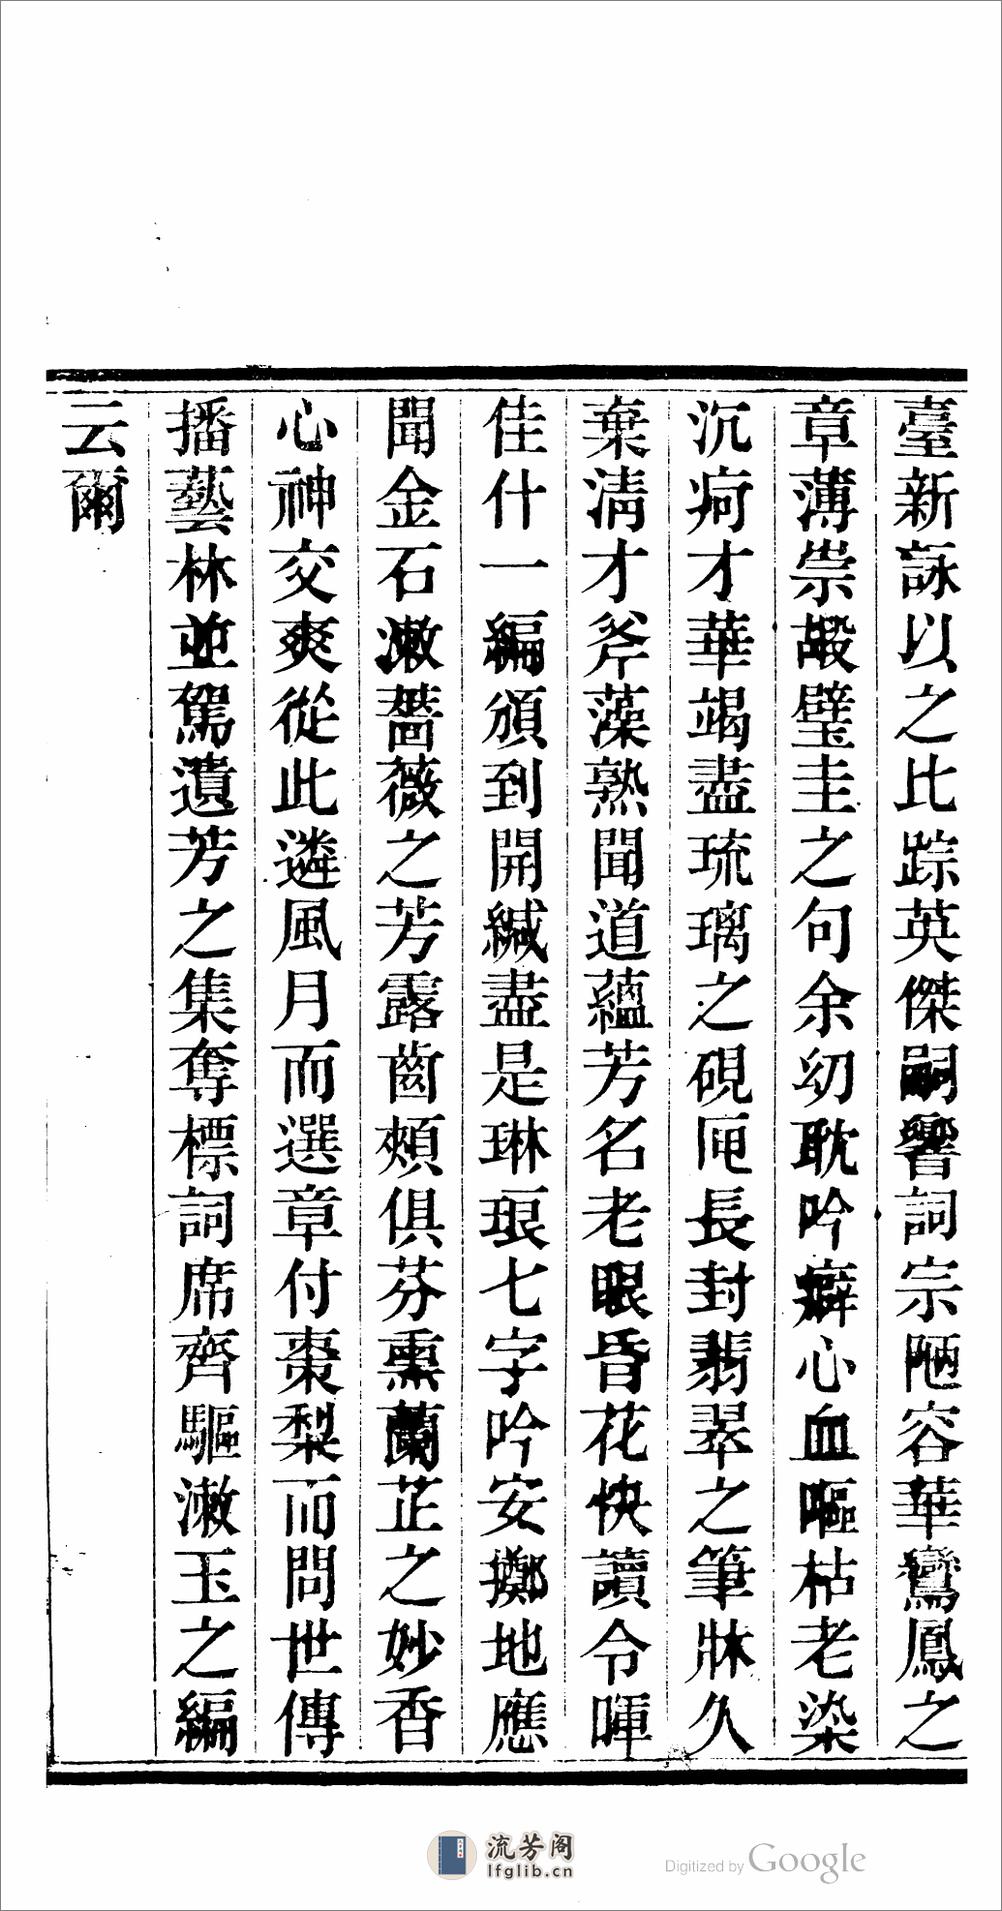 臺新詠以之比踪英傑嗣響詞宗陋容華鸞鳳之
章薄崇嘏璧圭之句余幼耽吟癖心血嘔枯老染
沉痾才華竭盡琉璃之硯匣長封翡翠之筆牀久
棄淸才斧藻熟聞道蘊芳名老眼昏花快讀令暉
佳什一編頒到開緘盡是琳琅七字吟安擲地應
聞金石漱薔薇之芳露齒頰俱芬熏蘭芷之妙香
心神交爽從此遴風月而選章付棗梨而問世傳
播藝林並駕遺芳之集奪標詞席齊驅漱玉之編
云爾
流芳阁
lfglib.cn
Digitized by Google